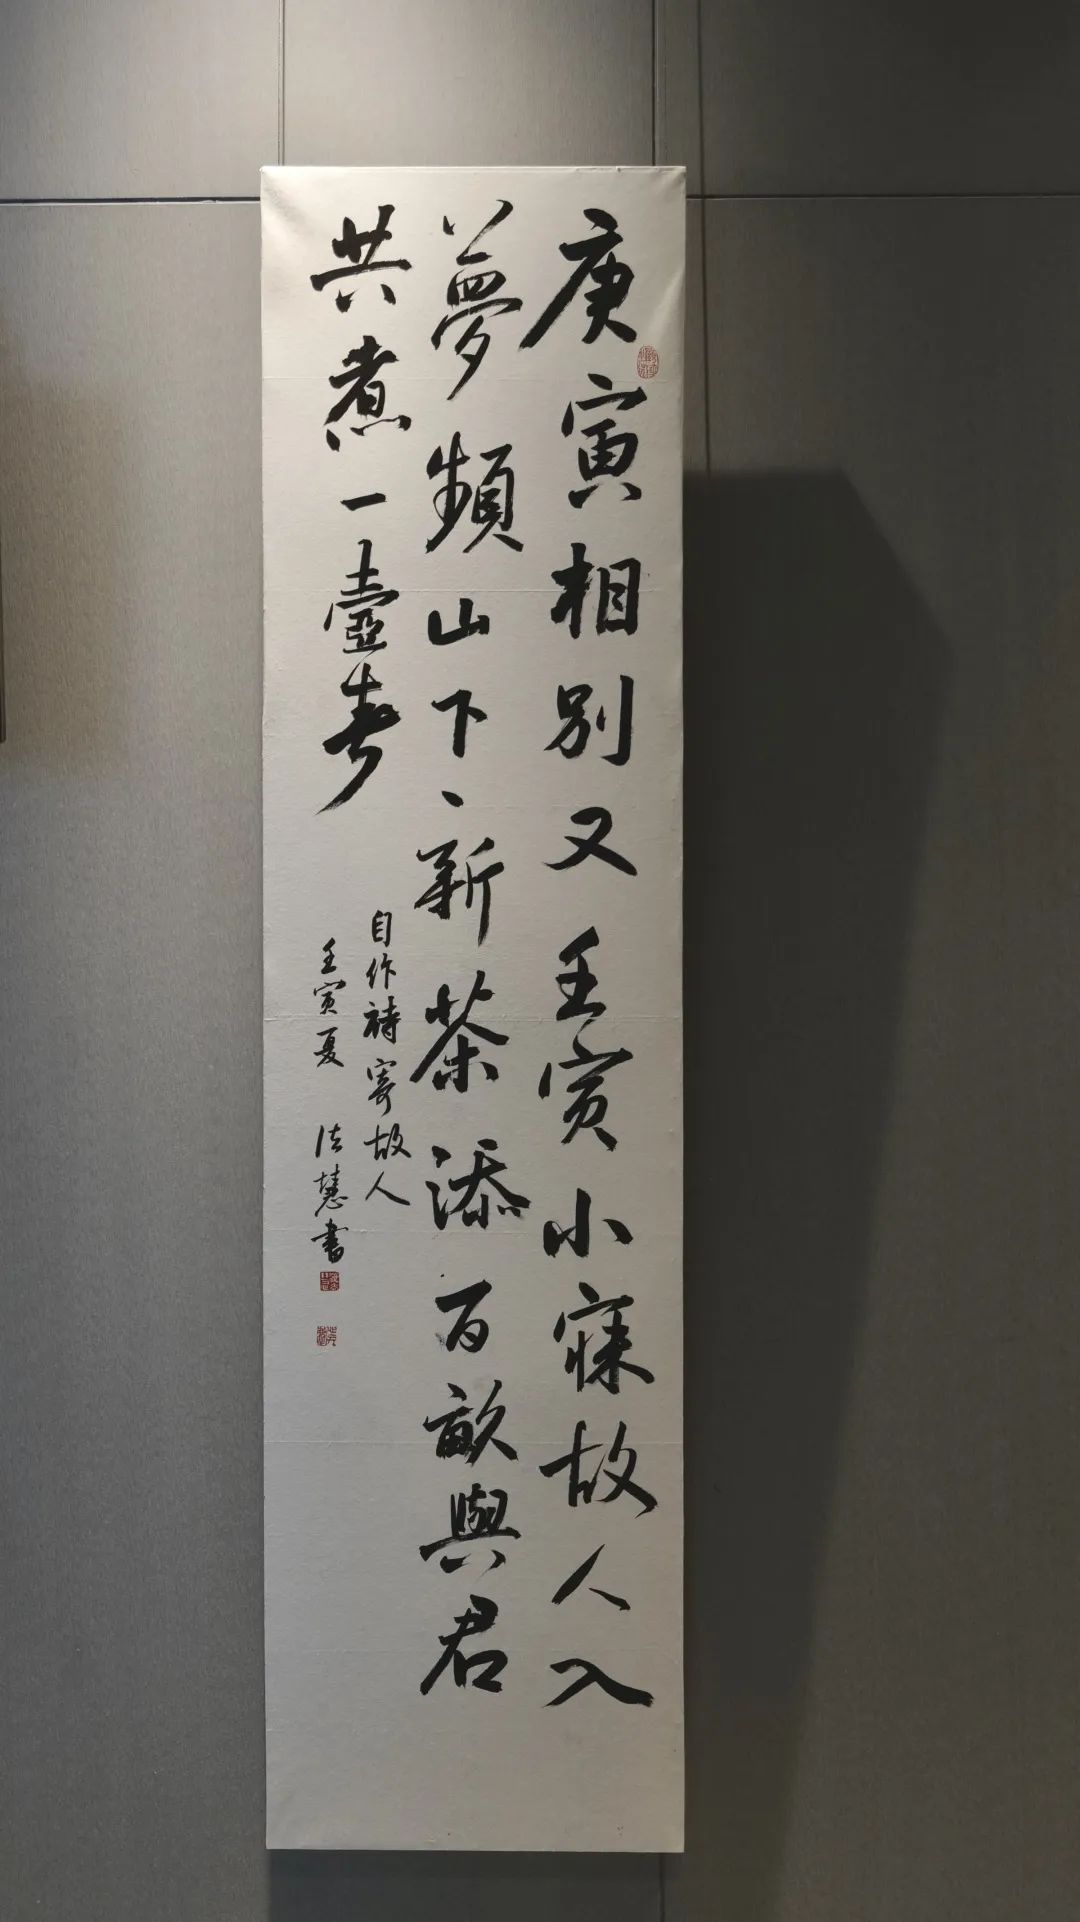 庚寅相别又壬寅小寐故人入
夢頻山下丶新茶添百畝與君
共煮一壺春
自作詩寄故人
壬寅夏 法慧書